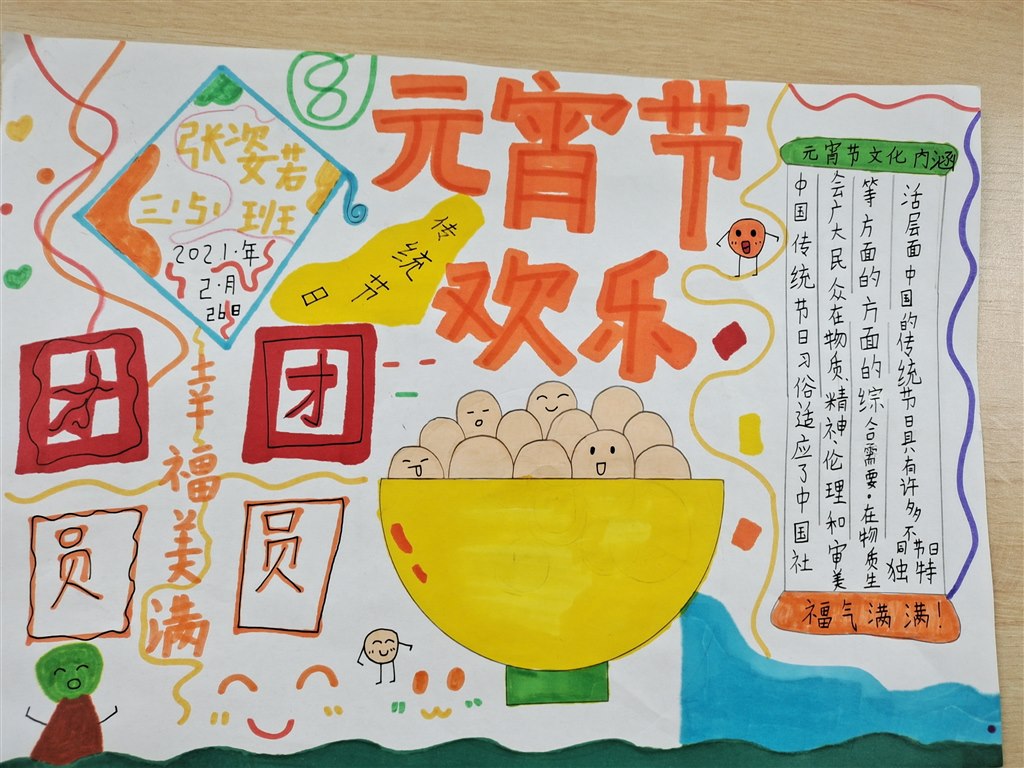 8
元宵节
欢乐
张姿若
三(5)班
2021.年
2.月
26日
传统节日
团
团
圆
圆
幸福美满
元宵节文化内涵
中国传统节日习俗适应了中国社
会广大民众在物质.精神.伦理和审美
等方面的方面的综合需要.在物质生
活层面中国的传统节日具有许多不
同节日
独特
福气满满!